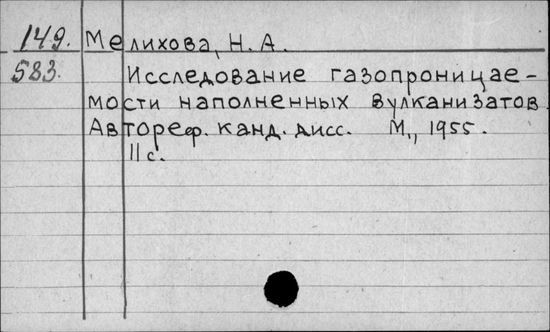 149. Мелихова, Н. А.
583. Исследование газопроницае-
мости наполненных вулканизатов.
Автореф. канд. дисс. М., 1955.
11 с.